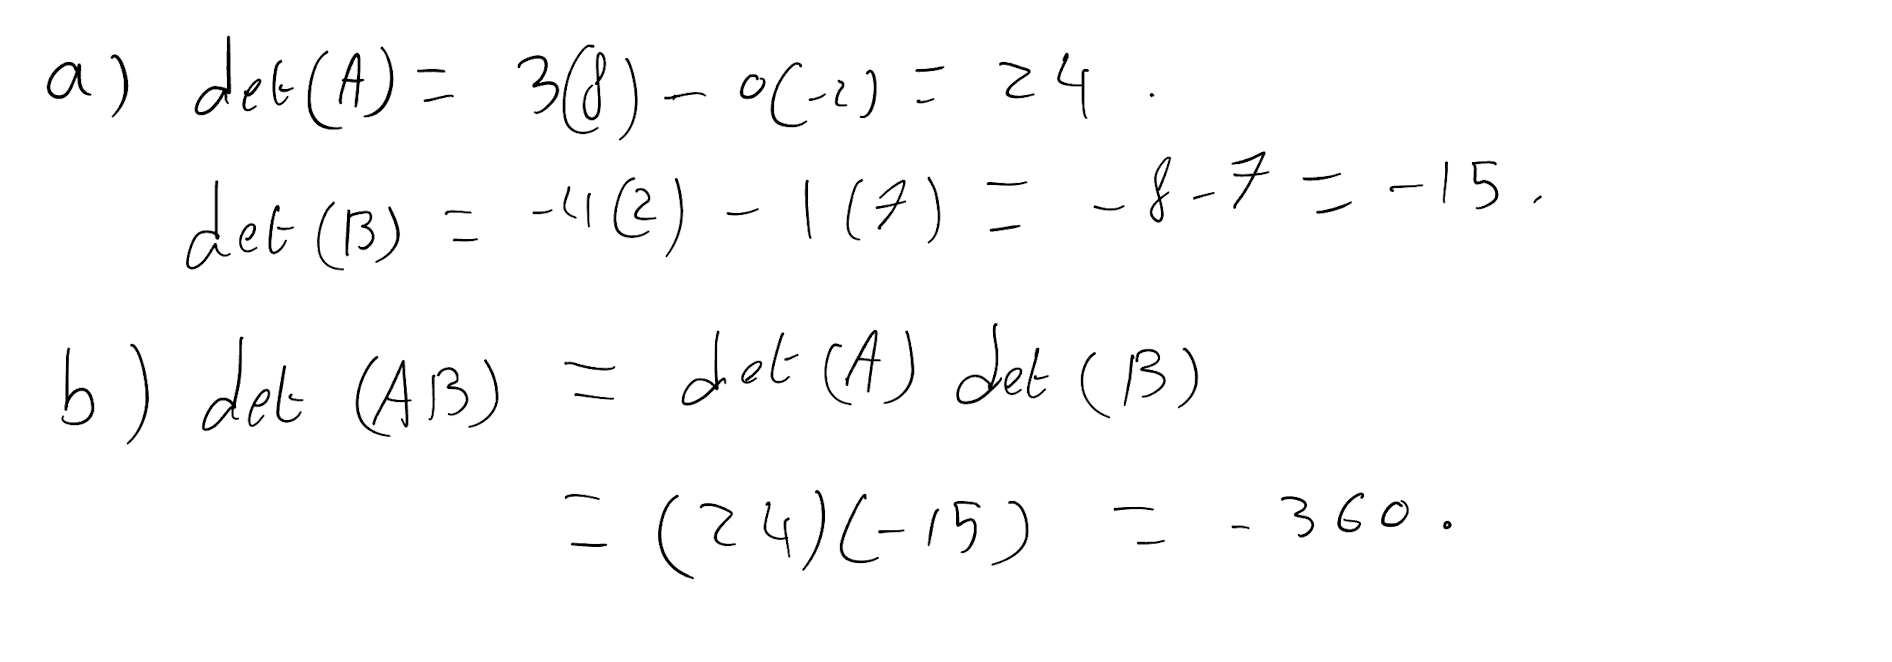 a) det(A) = 3(8) - 0(-2) = 24 .
det(B) = -4(2) - 1(7) = -8-7 = -15 .
b) det (AB) = det (A) det (B)
= (24)(-15) = -360 .